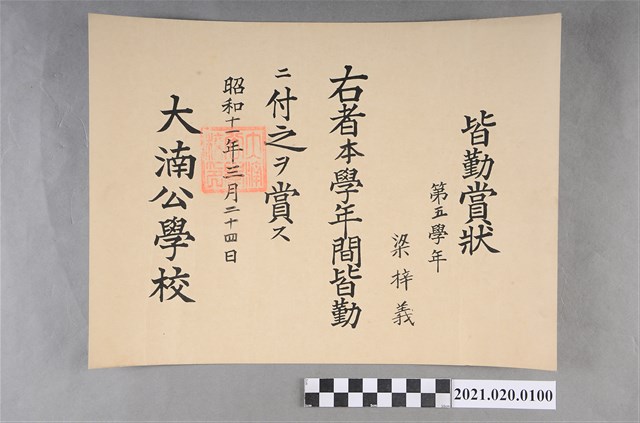 皆勤賞狀
第五學年
梁梓義
右者本學年間皆勤
ニ付之ヲ賞ス
昭和十一年三月二十四日
大湳公學校
2021.020.0100